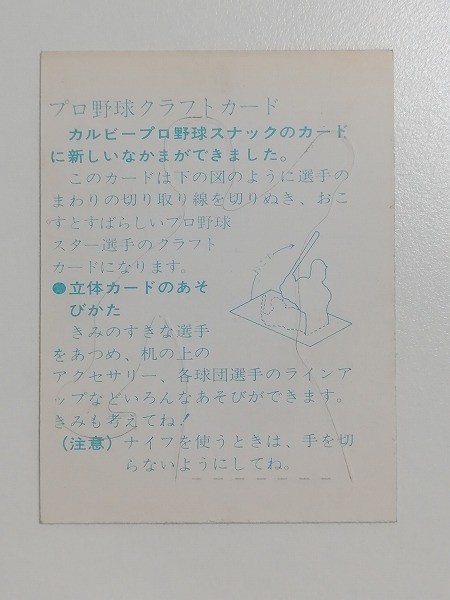 プロ野球クラフトカード
カルビープロ野球スナックのカード
に新しいなかまができました。
このカードは下の図のように選手の
まわりの切り取り線を切りぬき、おこ
すとすばらしいプロ野球
スター選手のクラフト
カードになります。
●立体カードのあそ
びかた
きみのすきな選手
をあつめ、机の上の
アクセサリー、各球団選手のラインア
ップなどいろんなあそびができます。
きみも考えてね!
(注意)ナイフを使うときは、手を切
らないようにしてね。